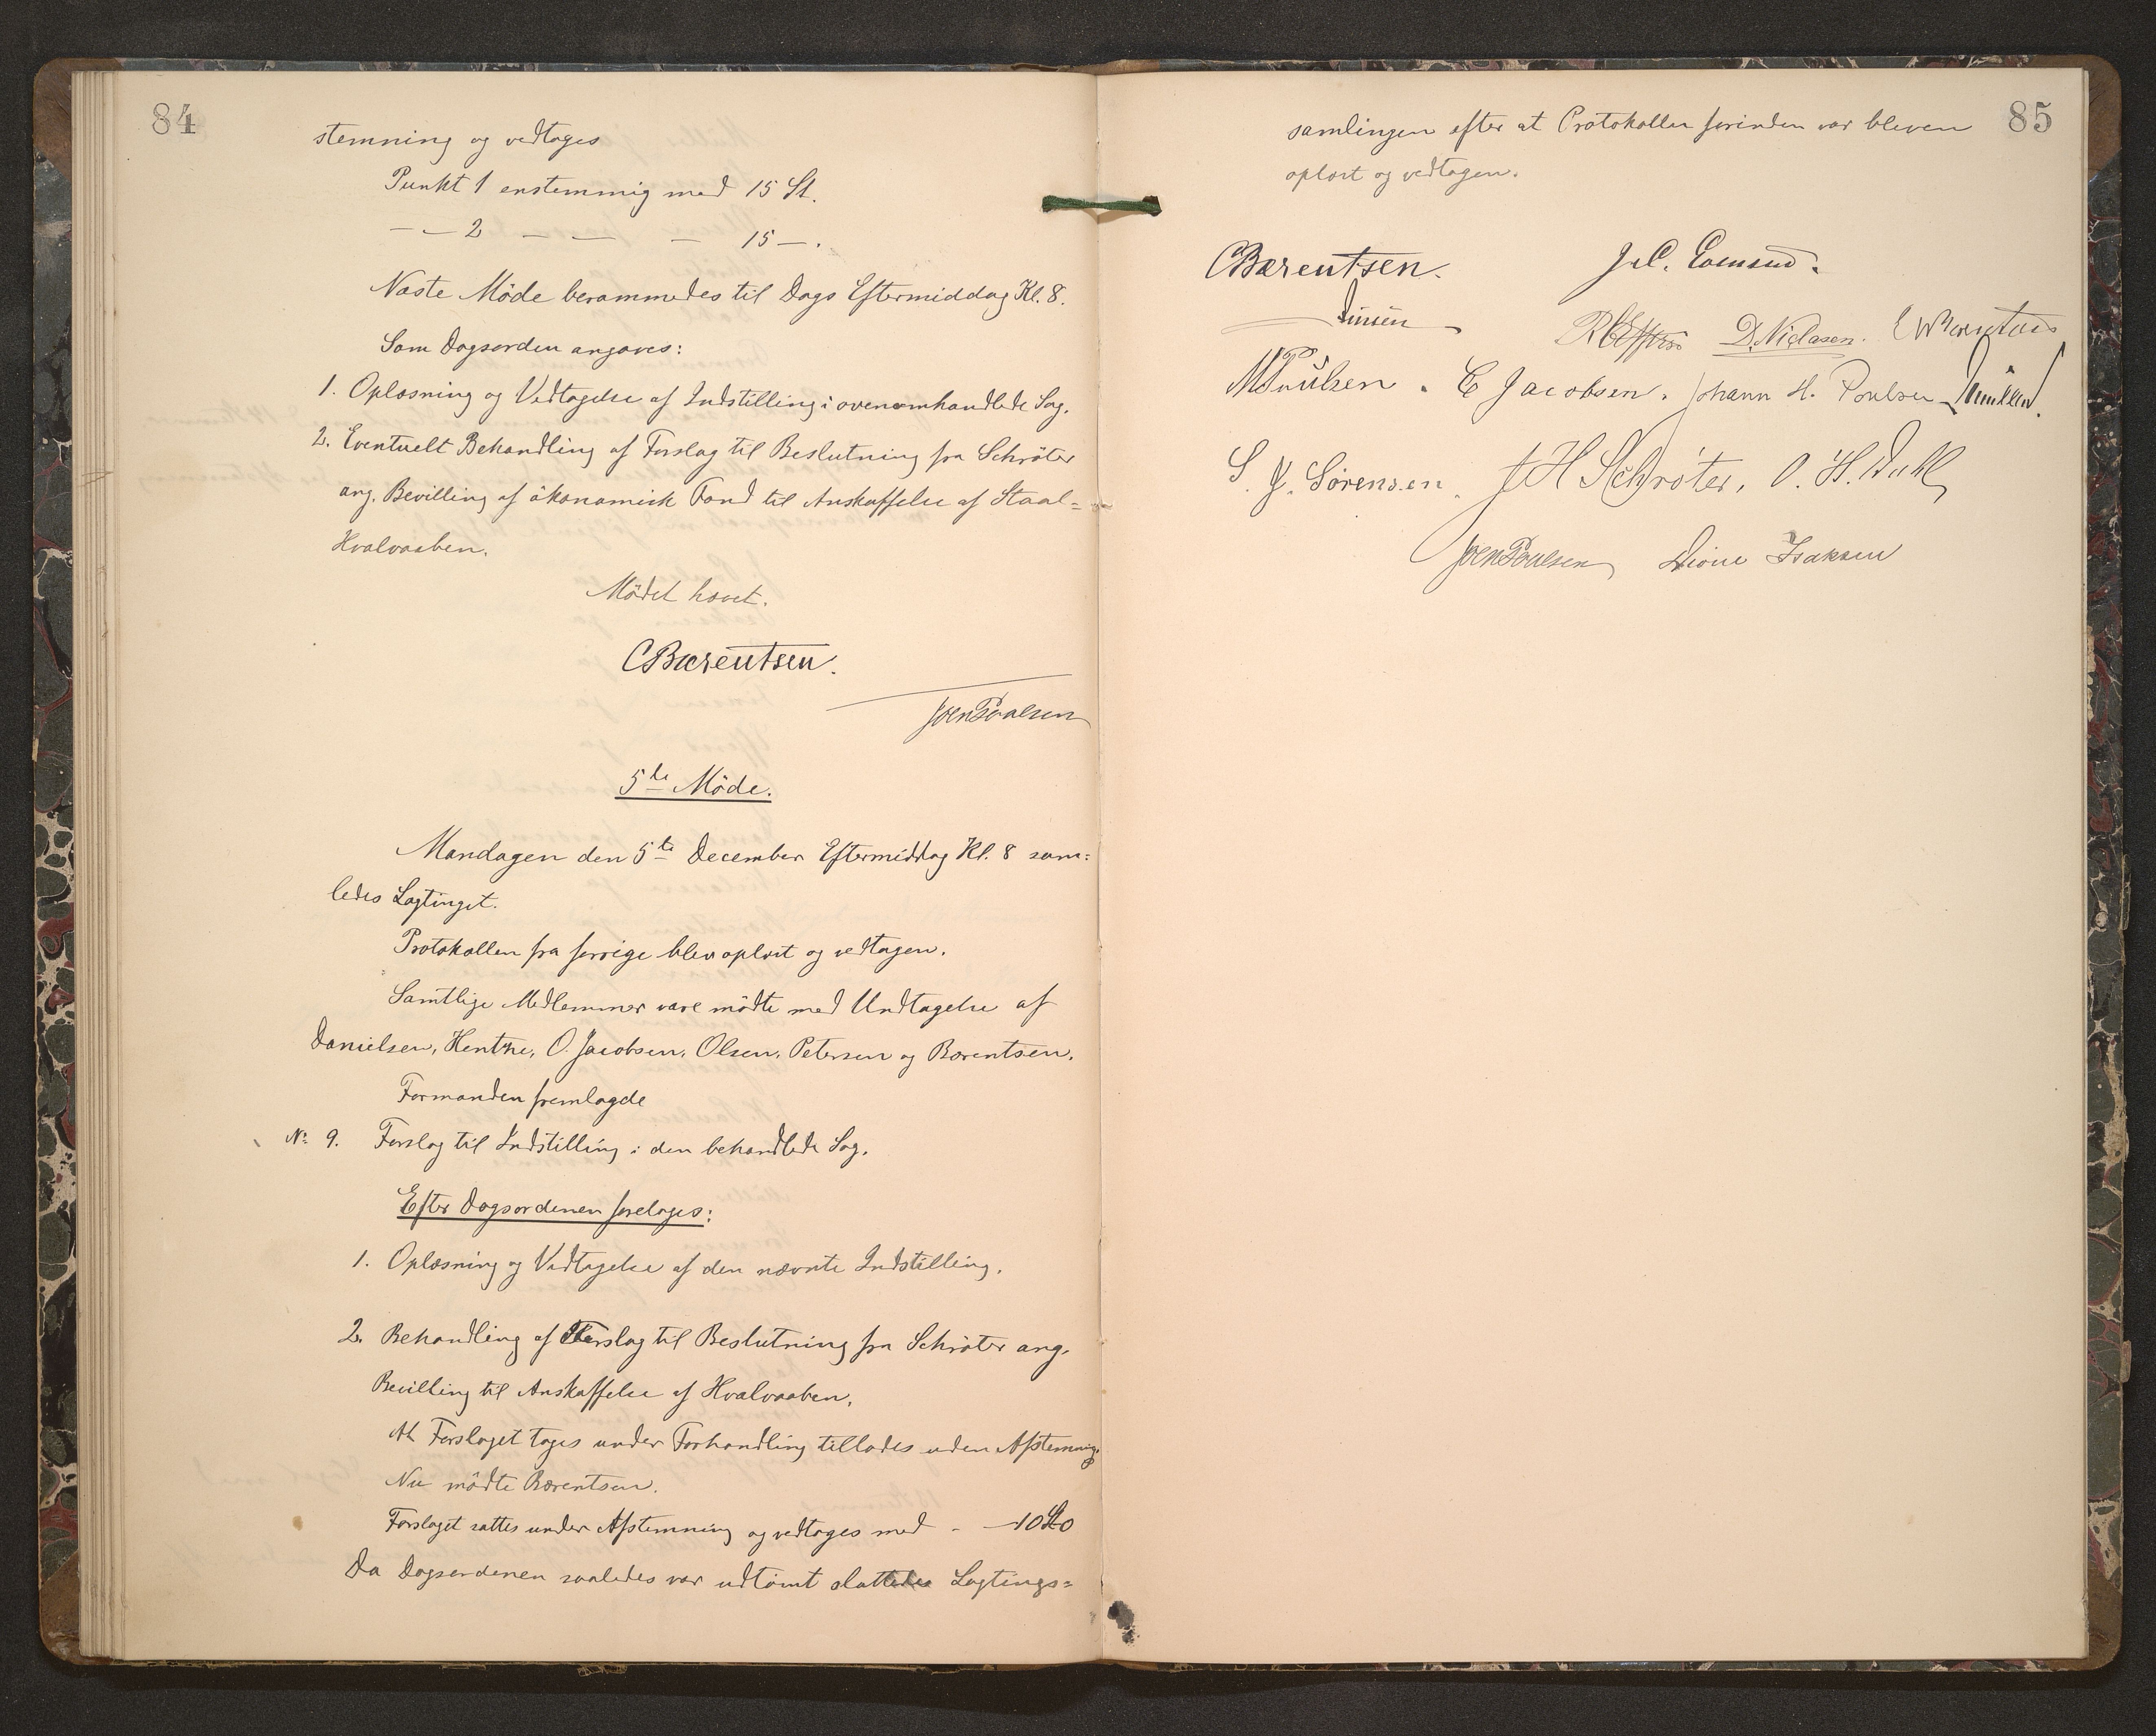 84
stemning og vedtoges
Punkt 1 enstemmig med 15 St.
— — 2 — — — 15 — .
Næste Möde berammedes til Dags Eftermiddag Kl. 8.
Som Dagsorden angaves:
1. Oplæsning og Vedtagelse af Indstilling i ovenomhandlede Sag.
2. Eventuelt Behandling af Forslag til Beslutning fra Schröter
ang. Bevilling af ökonomisk Fond til Anskaffelse af Staal=
Hvalvaaben.
Mödet hævet.
CBærentsen.
JoenPoulsen
5te Möde.
Mandagen den 5te December Eftermiddag Kl. 8 sam=
ledes Lagtinget.
Protokollen fra forrige blev oplæst og vedtagen.
Samtlige Medlemmer vare mödte med Undtagelse af
Danielsen, Hentze, O. Jacobsen, Olsen, Petersen og Bærentsen.
Formanden fremlagde
No 9. Forslag til Indstilling i den behandlede Sag.
Efter Dagsordenen foretoges:
1. Oplæsning og Vedtagelse af den nævnte Indstilling.
2. Behandling af Forslag til Beslutning fra Schröter ang.
Bevilling til Anskaffelse af Hvalvaaben.
At Forslaget toges under Forhandling tillodes uden Afstemning.
Nu mödte Bærentsen.
Forslaget sattes under Afstemning og vedtoges med - — 10
Da Dagsordenen saaledes var udtömt sluttedes Lagtings=
85
samlingen efter at Protokollen forinden var bleven
oplæst og vedtagen.
CBærentsen.
Jensen
D. Niclasen.
MPoulsen . C Jacobsen. Johann H. Poulsen
S. J. Sörensen. JH Schröter, O. H.
JoenPoulsen Isaksen